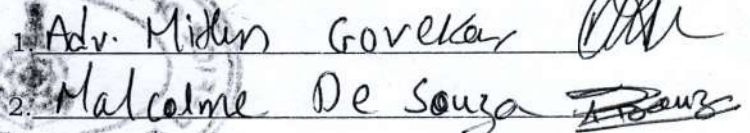 1. Adv. Mithun Govekar
2. Malcolme De Souza